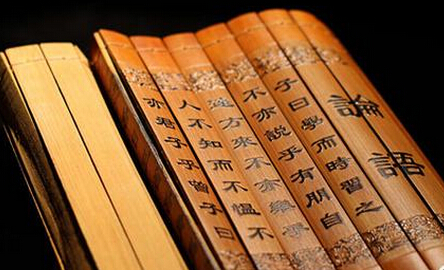 論語
子曰學而時習之
不亦說乎有朋自
遠方來不亦樂乎
人不知而不慍不
亦君子乎曾子曰